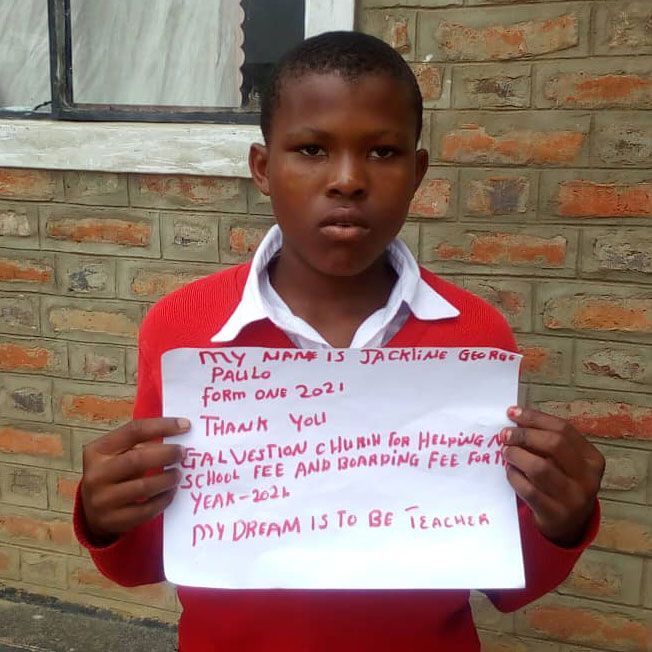 MY NAME IS JACKLINE GEORGE
PAULO
FORM ONE 2021
THANK YOU
GALVESTION CHURH FOR HELPING
SCHOOL FEE AND BOARDING FEE FOR
YEAR-2021
MY DREAM IS TO BE TEACHER